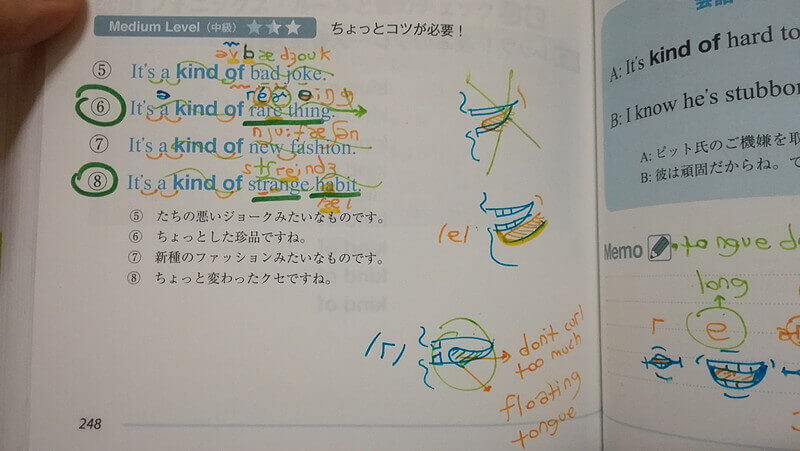 Medium Level (中級) ★★★ ちょっとコツが必要!
əv bæ dʒouk
⑤ It's a kind of bad joke.
⑥ It's a kind of rare thing.
njuː fæʃən
⑦ It's a kind of new fashion.
streindʒ
⑧ It's a kind of strange habit.
⑤ たちの悪いジョークみたいなものです。
⑥ ちょっとした珍品ですね。
⑦ 新種のファッションみたいなものです。
⑧ ちょっと変わったクセですね。
/e/
/r/
don't curl
too much
floating
tongue
248
会話
A: It's kind of hard to
B: I know he's stubbor
A: ピット氏のご機嫌を取
B: 彼は頑固だからね。て
Memo
tongue
long
r
e